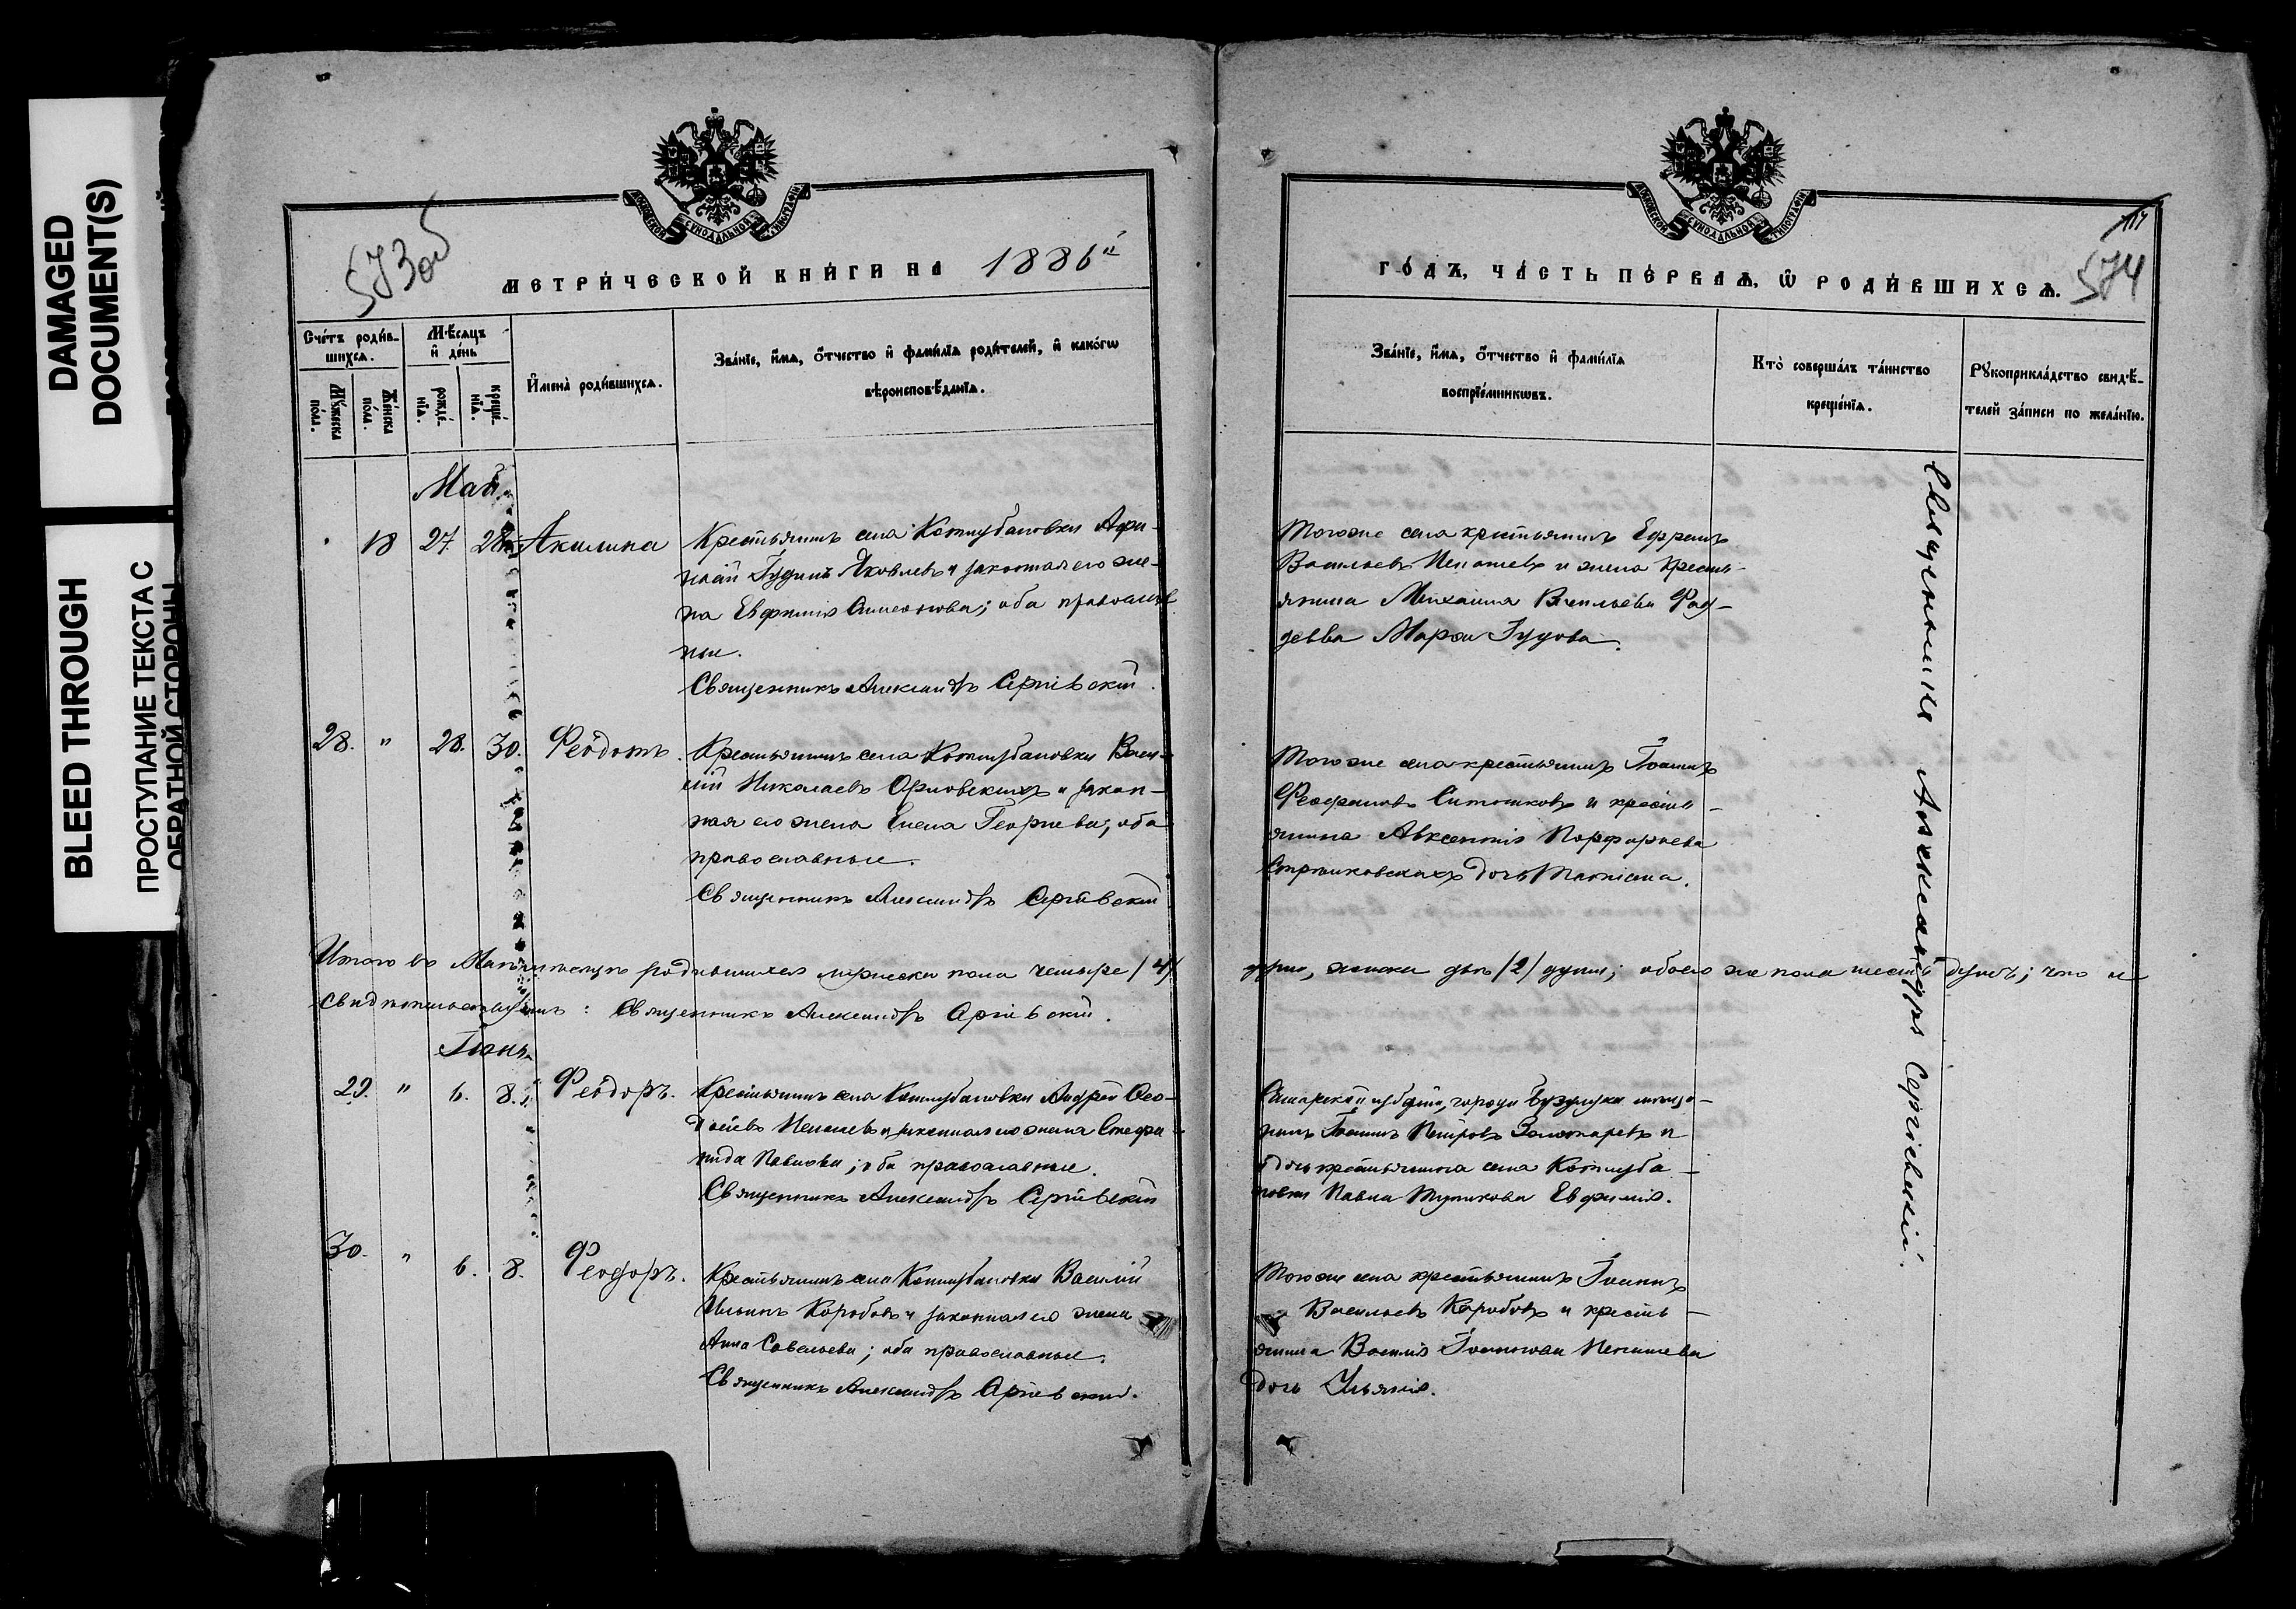 DAMAGED
DOCUMENT(S)
BLEED THROUGH
ПРОСТУПАНИЕ ТЕКСТА С
ОБРАТНОЙ СТОРОНЫ
573об
МЕТРИ́ЧЕСКОЙ КНИ́ГИ НА 1886й
Сче́тъ роди́в-
шихсѧ.
Мꙋ́жеска по́ла.
Же́нска по́ла.
Мѣ́сѧцъ и҆ де́нь
рожде́-нїѧ.
креще́-нїѧ.
И҆мена̀ роди́вшихсѧ.
Зва́нїе, и҆́мѧ, ѻ҆́тчество и҆ фами́лїѧ роди́телей, и҆ како́гѡ
вѣроисповѣ́данїѧ.
Май.
18 27. 28. Акилина
Крестьянинъ села Котлубановки Афа-
насій Гудинъ Яковлевъ и законная его же-
на Евфимія Симеонова; оба православ
ные.
Священникъ Александръ Сергіевскій.
28. " 28. 30. Ѳеодотъ.
Крестьянинъ села Котлубановки Васи-
лій Николаевъ Орловскихъ и закон-
ная его жена Елена Георгіева; оба
православные.
Священникъ Александръ Сергіевскій
Итого въ Маѣ мѣсяцѣ родившихся мужеска пола четыре /4/
свидѣтельствуемъ: Священникъ Александръ Сергіевскій.
Іюнь
29. " 6. 8. Ѳеодоръ.
Крестьянинъ села Котлубановки Андрей
и законная его жена Стефа-
нида Павлова; оба православные.
Священникъ Александръ Сергіевскій
30. " 6. 8. Ѳеодоръ.
Крестьянинъ села Котлубановки Василій
Ильинъ Коробовъ и законная его жена
Анна Савельева; оба православные.
Священникъ Александръ Сергіевскій.
574
ГО́ДЪ, ЧА́СТЬ ПЕ́РВАѦ, Ѡ҆ РОДИ́ВШИХСѦ.
Зва́нїе, и҆́мѧ, ѻ҆́тчество и҆ фами́лїѧ
воспрїе́мникѡвъ.
Кто̀ соверша́лъ та́инство
креще́нїѧ.
Рꙋкоприкла́дство свидѣ́-
телей за́писи по жела́нїю.
Тогоже села крестьянинъ Ефремъ
Васильевъ и жена кресть-
янина Михаила Васильева Фад-
деева Марѳа Гудова.
Того же села крестьянинъ Іоаннъ
Ѳеофановъ Ситниковъ и кресть-
янина Авксентія Порфирьева
дочь Татіана.
души, женска двѣ /2/ души; обоего же пола шесть душъ; что и
Самарской губерніи, города Бузулука мѣща-
нинъ Іоаннъ Петровъ Золотаревъ и
дочь крестьянина села Котлуба-
новки Павла Тупикова Евфимія.
Тогоже села крестьянинъ Іоаннъ
Васильевъ Коробовъ и кресть-
янина Василія Іоаннова
дочь Ульянія.
Священникъ Александръ Сергіевскій.